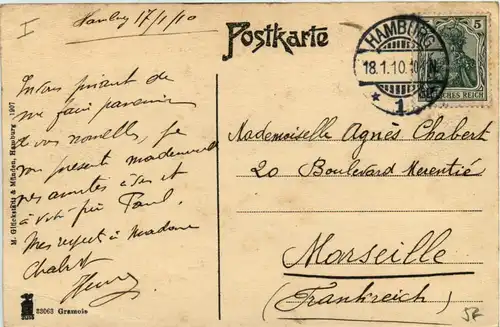 I
Hamburg 17/1/10
Postkarte
HAMBURG
18.1.10.10
* 1
5
DEUTSCHES REICH
En vous priant de
me faire parvenir
de vos nouvelles, je
vous présente mademoiselle
mes amitiés à
à votre frère Paul.
Mes respects à Madame
Chabert
Henry
Mademoiselle Agnès Chabert
20 Boulevard Merentié
Marseille
(Frankreich)
M. Glückstadt & Münden, Hamburg 1907
32063 Gramois